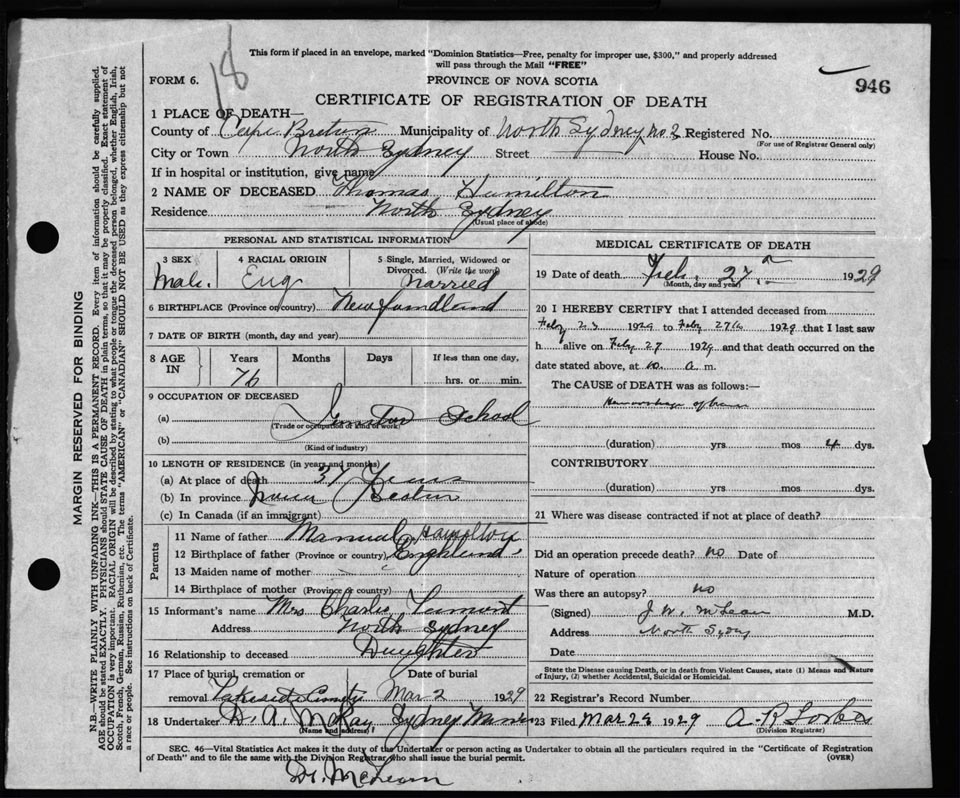 18
This form if placed in an envelope, marked "Dominion Statistics—Free, penalty for improper use, $300," and properly addressed
will pass through the Mail "FREE"
946
FORM 6.
PROVINCE OF NOVA SCOTIA
CERTIFICATE OF REGISTRATION OF DEATH
1 PLACE OF DEATH—
County of Cape Breton Municipality of North Sydney No 2 Registered No.
(For use of Registrar General only)
City or Town North Sydney Street House No.
If in hospital or institution, give name
2 NAME OF DECEASED Thomas Hamilton
Residence North Sydney
(Usual place of abode)
PERSONAL AND STATISTICAL INFORMATION
3 SEX Male.
4 RACIAL ORIGIN Eng
5 Single, Married, Widowed or Divorced. (Write the word) Married
6 BIRTHPLACE (Province or country) Newfoundland
7 DATE OF BIRTH (month, day and year)
8 AGE IN Years Months Days If less than one day,
76 hrs. or min.
9 OCCUPATION OF DECEASED
(a) School
(Trade or occupation or kind of work)
(b)
(Kind of industry)
10 LENGTH OF RESIDENCE (in years and months)
(a) At place of death 37 Years
(b) In province Nova Scotia
(c) In Canada (if an immigrant)
Parents
11 Name of father Manuel Hamilton
12 Birthplace of father (Province or country) England
13 Maiden name of mother
14 Birthplace of mother (Province or country)
15 Informant's name Mrs Charlie
Address North Sydney
16 Relationship to deceased Daughter
17 Place of burial, cremation or Date of burial
removal Lakeside Mar 2 1929
18 Undertaker D. A. McKay Sydney Mines
(Name and address)
MEDICAL CERTIFICATE OF DEATH
19 Date of death Feb. 27 1929
(Month, day and year)
20 I HEREBY CERTIFY that I attended deceased from
Feby 23 1929 to Feby 27th 1929 that I last saw
h alive on Feby 27 1929 and that death occurred on the
date stated above, at a. m.
The CAUSE of DEATH was as follows:—
Hemorrhage of brain
(duration) yrs mos 4 dys.
CONTRIBUTORY
(duration) yrs mos dys.
21 Where was disease contracted if not at place of death?
Did an operation precede death? no Date of
Nature of operation
Was there an autopsy? no
(Signed) J. W. McLean M.D.
Address North Sydney
Date
State the Disease causing Death, or in death from Violent Causes, state (1) Means and Nature
of Injury, (2) whether Accidental, Suicidal or Homicidal.
22 Registrar's Record Number
23 Filed Mar 28 1929 A. R. Forbes
(Division Registrar)
SEC. 46—Vital Statistics Act makes it the duty of the Undertaker or person acting as Undertaker to obtain all the particulars required in the "Certificate of Registration
of Death" and to file the same with the Division Registrar who shall issue the burial permit.
(OVER)
Dr. McLean
MARGIN RESERVED FOR BINDING
N.B.—WRITE PLAINLY WITH UNFADING INK—THIS IS A PERMANENT RECORD. Every item of information should be carefully supplied.
AGE should be stated EXACTLY. PHYSICIANS should STATE CAUSE OF DEATH in plain terms, so that it may be properly classified. Exact statement of
OCCUPATION is very important. RACIAL ORIGIN will be described by stating to what people or tongue the deceased person belonged, whether English, Irish,
Scotch, French, German, Russian, Ruthenian, etc. The terms "AMERICAN" or "CANADIAN" SHOULD NOT BE USED as they express citizenship but not
a race or people. See instructions on back of Certificate.